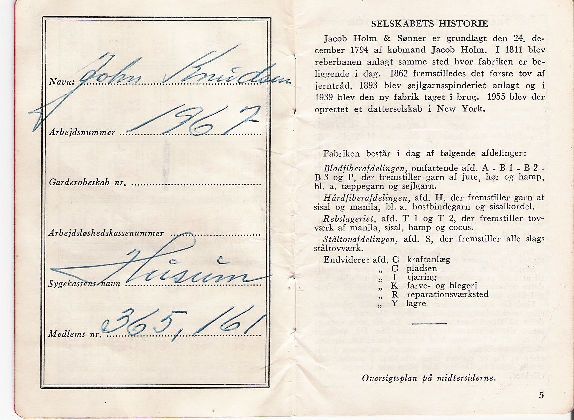 Navn: John Knudsen
Arbejdsnummer 1967
Garderobeskab nr.
Arbejdsløshedskassenummer
Sygekassens navn Husum
Medlems nr. 365,161
SELSKABETS HISTORIE
Jacob Holm & Sønner er grundlagt den 24. de-
cember 1794 af købmand Jacob Holm. I 1811 blev
reberbanen anlagt samme sted hvor fabriken er be-
liggende i dag. 1862 fremstilledes det første tov af
jerntråd, 1893 blev sejlgarnsspinderiet anlagt og i
1939 blev den ny fabrik taget i brug. 1955 blev der
oprettet et datterselskab i New York.
Fabriken består i dag af følgende afdelinger:
Blødfiberafdelingen, omfattende afd. A - B 1 - B 2 -
B 3 og P, der fremstiller garn af jute, hør og hamp,
bl. a. tæppegarn og sejlgarn.
Hårdfiberafdelingen, afd. H, der fremstiller garn af
sisal og manila, bl. a. høstbindegarn og sisalkordel.
Rebslageriet, afd. T 1 og T 2, der fremstiller tov-
værk af manila, sisal, hamp og cocus.
Ståltovafdelingen, afd. S, der fremstiller alle slags
ståltovværk.
Endvidere: afd. C kraftanlæg
„ G pladsen
„ I tjæring
„ K farve- og blegeri
„ R reparationsværksted
„ Y lagre
Oversigtsplan på midtersiderne.
5